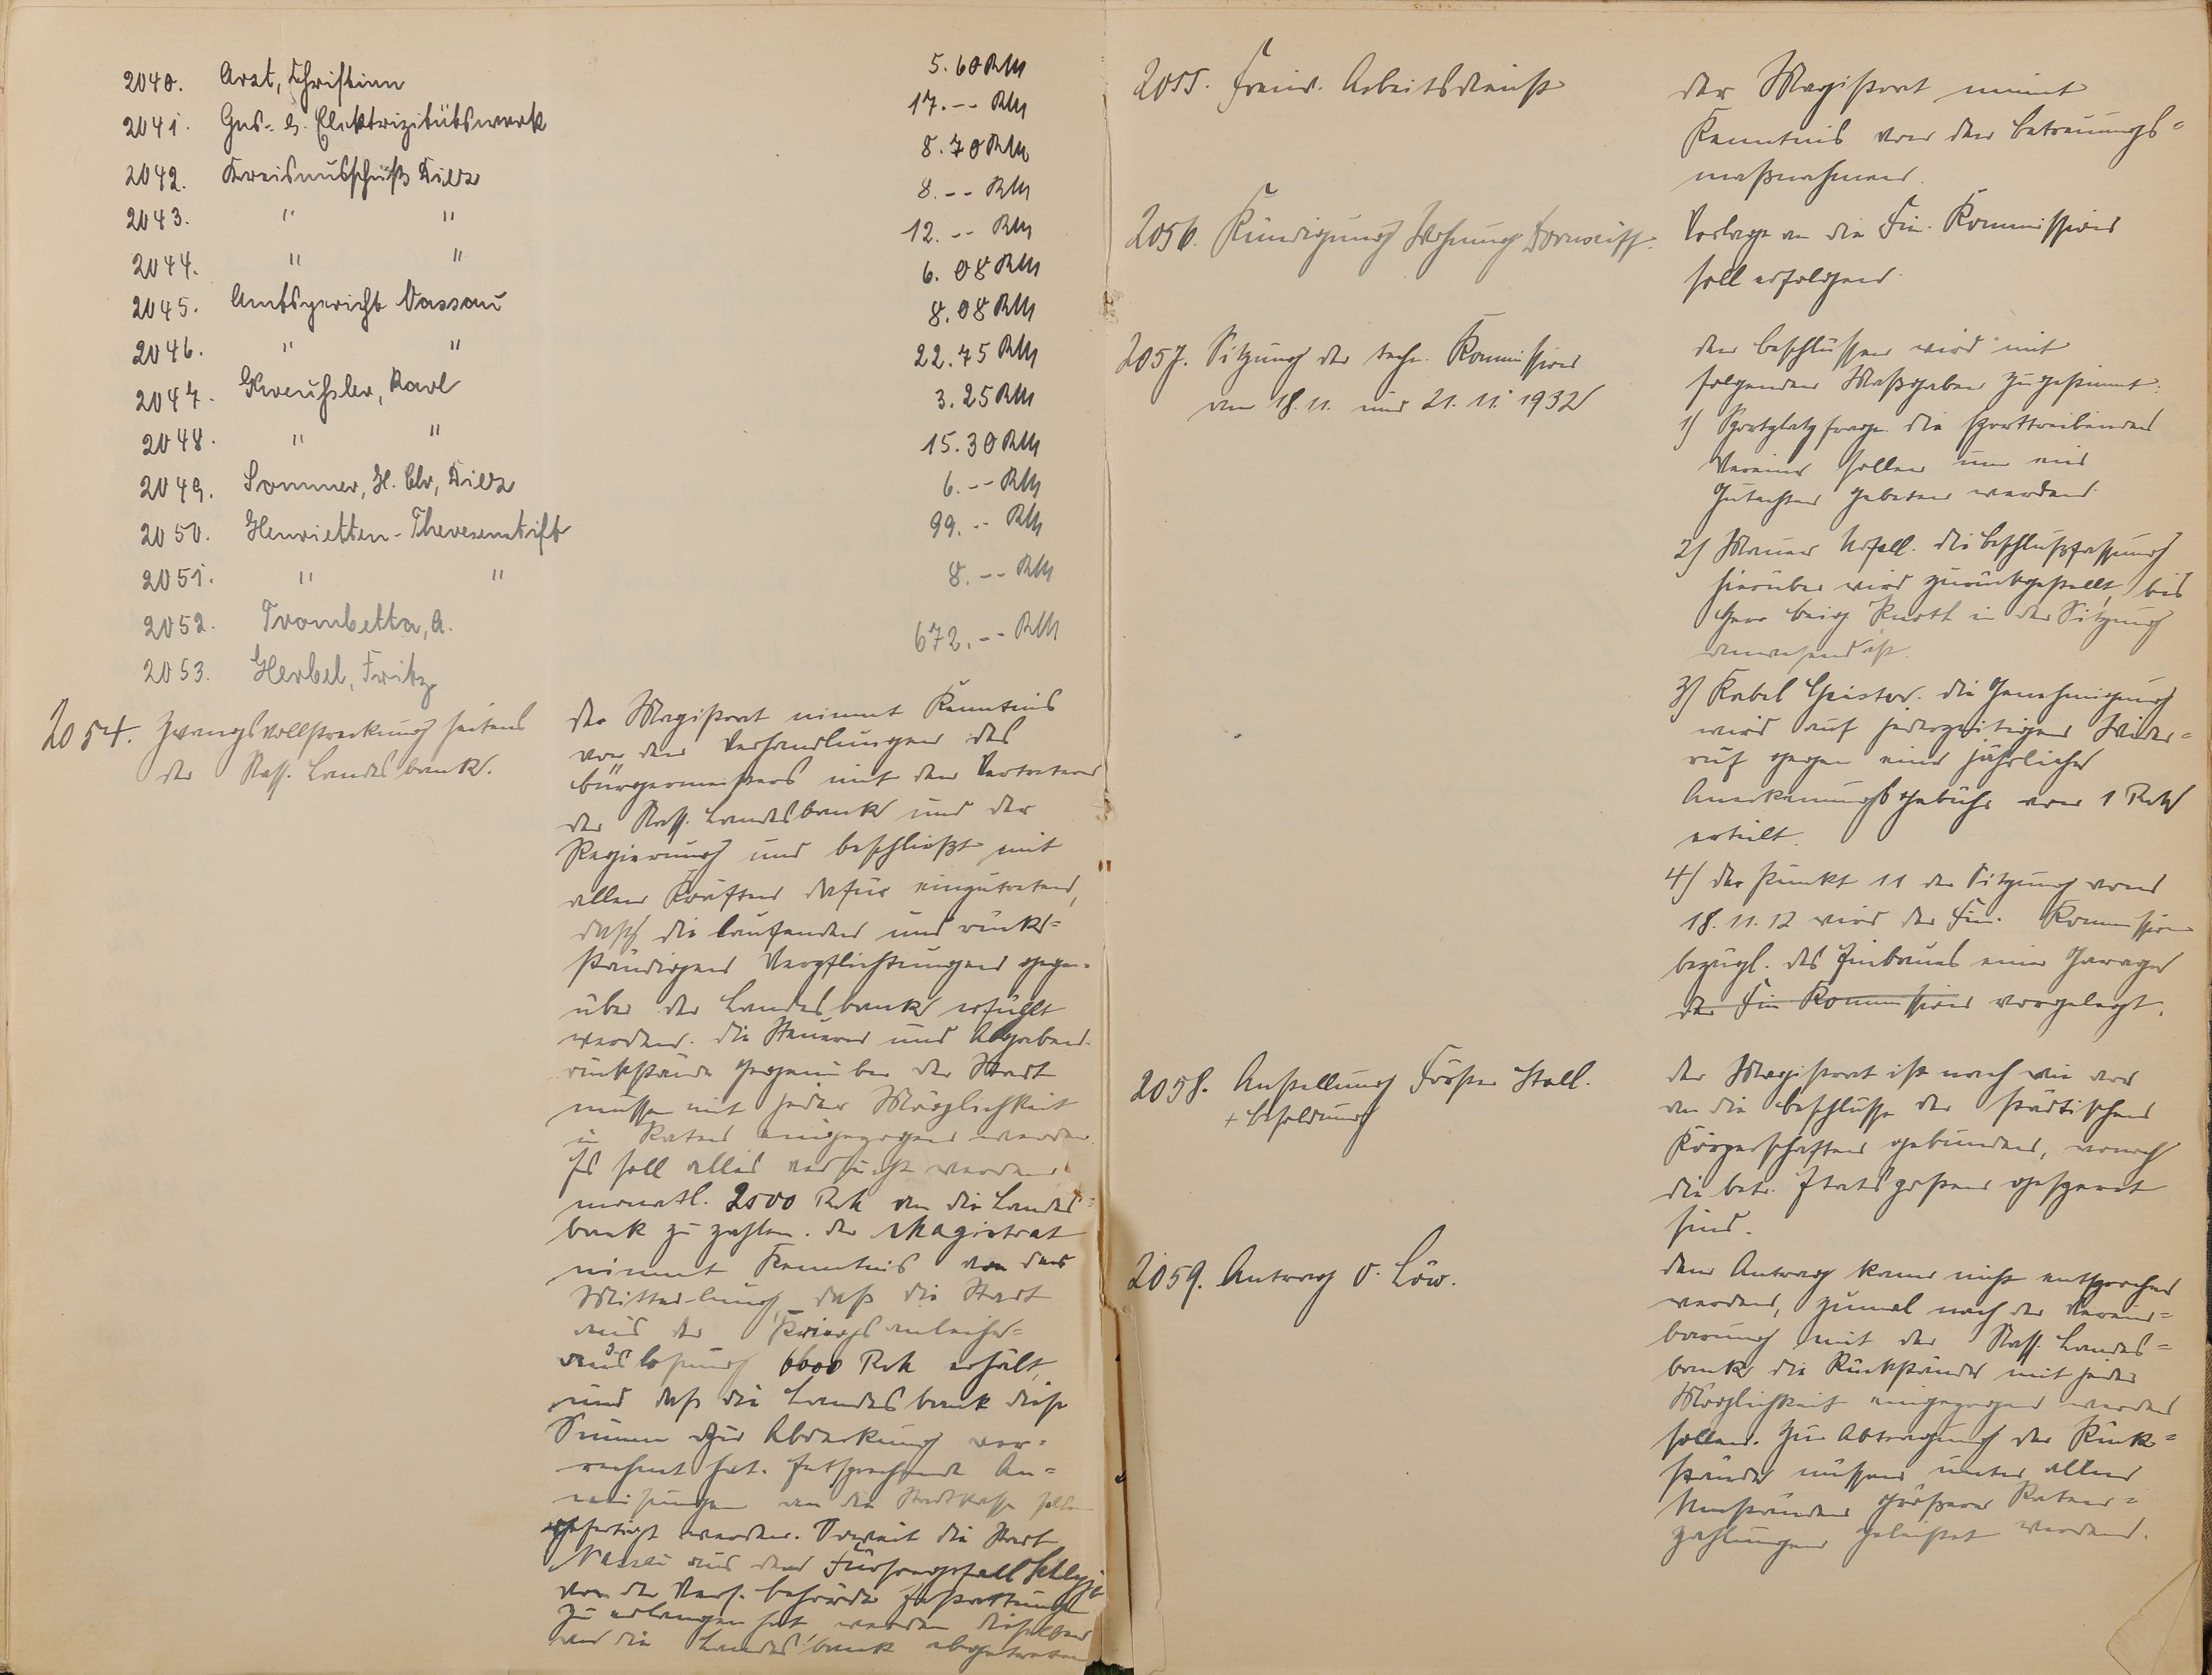 2040. Arzt, Christian 5.60 RM
2041. Gas- u. Elektrizitätswerk 17.-- RM
2042. Kreisausschuß Diez 8.70 RM
2043. " " 8.-- RM
2044. " " 12.-- RM
2045. Amtsgericht Nassau 6.08 RM
2046. " " 8.08 RM
2047. Karl 22.75 RM
2048. " " 3.25 RM
2049. Sommer, H. Chr, Diez 15.30 RM
2050. Henrietten-Theresenstift 6.-- RM
2051. " " 99.-- RM
2052. Trombetta, A. 8.-- RM
2053. Herbel, Fritz 672.-- RM
2054. Zwangsvollstreckung seitens
der Nass. Landesbank.
Der Magistrat nimmt Kenntnis
von den Verhandlungen des
Bürgermeisters mit den Vertretern
der Nass. Landesbank und der
Regierung und beschließt mit
allen Kräften dafür einzutreten,
daß die laufenden und rück=
ständigen Verpflichtungen gegen-
über der Landesbank erfüllt
werden. Die Steuern und Abgaben-
rückstände gegenüber der Stadt
müssen mit jeder Möglichkeit
in Raten eingezogen werden.
Es soll alles versucht werden
monatl. 2000 RM an die Landes=
bank zu zahlen. Der Magistrat
nimmt Kenntnis von der
Mitteilung, daß die Stadt
aus der Kriegsanleihe=
auslosung 6600 RM erhält,
und daß die Landesbank diese
Summe zur Abdeckung ver=
rechnet hat. Entsprechende An=
weisungen an die Stadtkasse sollen
gefertigt werden. Soweit die Stadt
Nassau aus dem Fürsorgefall
von der Vers. behörde Erstattungen
zu erlangen hat, werden dieselben
an die Landesbank abgetreten
2055. Freiw. Arbeitsdienst
Der Magistrat nimmt
Kenntnis von den Betreuungs=
maßnahmen.
2056. Kündigung Wohnung
Vorlage an die Fin. Kommission
soll erfolgen.
2057. Sitzung der techn. Kommission
vom 18.11. und 21.11.1932
Den Beschlüssen wird mit
folgenden Maßgaben zugestimmt:
1) Sportplatzfrage. Die sporttreibenden
Vereine sollen um ein
Gutachten gebeten werden.
2) Mauer Die Beschlußfassung
hierüber wird zurückgestellt, bis
Herr Beig. in der Sitzung
anwesend ist.
3) Kabel Die Genehmigung
wird auf jederzeitigen Wider=
ruf gegen eine jährliche
Anerkennungsgebühr von 1 RM
erteilt.
4) Der Punkt 11 der Sitzung vom
18.11.12 wird der Fin. Kommission
bezügl. des Einbaues einer Garage
der Fin Kommission vorgelegt.
2058. Anstellung Förster Stoll.
+ Besoldung
Der Magistrat ist nach wie vor
an die Beschlüsse der städtischen
Körperschaften gebunden, wonach
die betr. Etatsposten gesperrt
sind.
2059. Antrag O. Löw.
Dem Antrag kann nicht entsprochen
werden, zumal nach der Verein=
barung mit der Nass. Landes=
bank die Rückstände mit jeder
Möglichkeit eingezogen werden
sollen. Zur Abtragung der Rück=
stände müssen unter allen
Umständen größere Raten=
zahlungen geleistet werden.